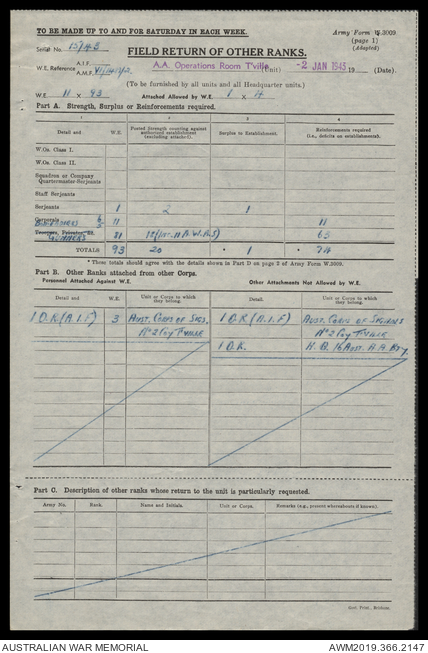 TO BE MADE UP TO AND FOR SATURDAY IN EACH WEEK.
Army Form W.3009
(page 1)
(Adapted)
Serial No. 15/43
FIELD RETURN OF OTHER RANKS.
W.E. Reference A.I.F.
A.M.F.
A.A. Operations Room T'ville (Unit) -2 JAN 1943 19 (Date).
(To be furnished by all units and all Headquarter units.)
W.E. 11 x 93 Attached Allowed by W.E. 1 x 4
Part A. Strength, Surplus or Reinforcements required.
1 2 3 4
Detail and W.E. Posted Strength counting against authorized establishment (excluding attached). Surplus to Establishment. Reinforcements required (i.e., deficits on establishment).
W.Os. Class I.
W.Os. Class II.
Squadron or Company
Quartermaster-Serjeants
Staff Serjeants
Serjeants 1 2 1
Corporals
BOMBADIERS 11 11
GUNNERS 81 63
TOTALS 93 20 * 1 * 74
* These totals should agree with the details shown in Part D on page 2 of Army Form W.3009.
Part B. Other Ranks attached from other Corps.
Personnel Attached Against W.E. Other Attachments Not Allowed by W.E.
Detail and W.E. Unit or Corps to which they belong. Detail. Unit or Corps to which they belong.
1 O.R. (A.I.F) 3 AUST. CORPS OF SIGS, 1 O.R. (A.I.F) AUST. CORPS OF SIGNALS
No 2 Coy T'VILLE No 2 Coy T'VILLE
1 O.R. H.Q. 16 AUST. A.A. Bty.
Part C. Description of other ranks whose return to the unit is particularly requested.
Army No. Rank. Name and Initials. Unit or Corps. Remarks (e.g., present whereabouts if known).
Govt. Print., Brisbane.
AUSTRALIAN WAR MEMORIAL AWM2019.366.2147